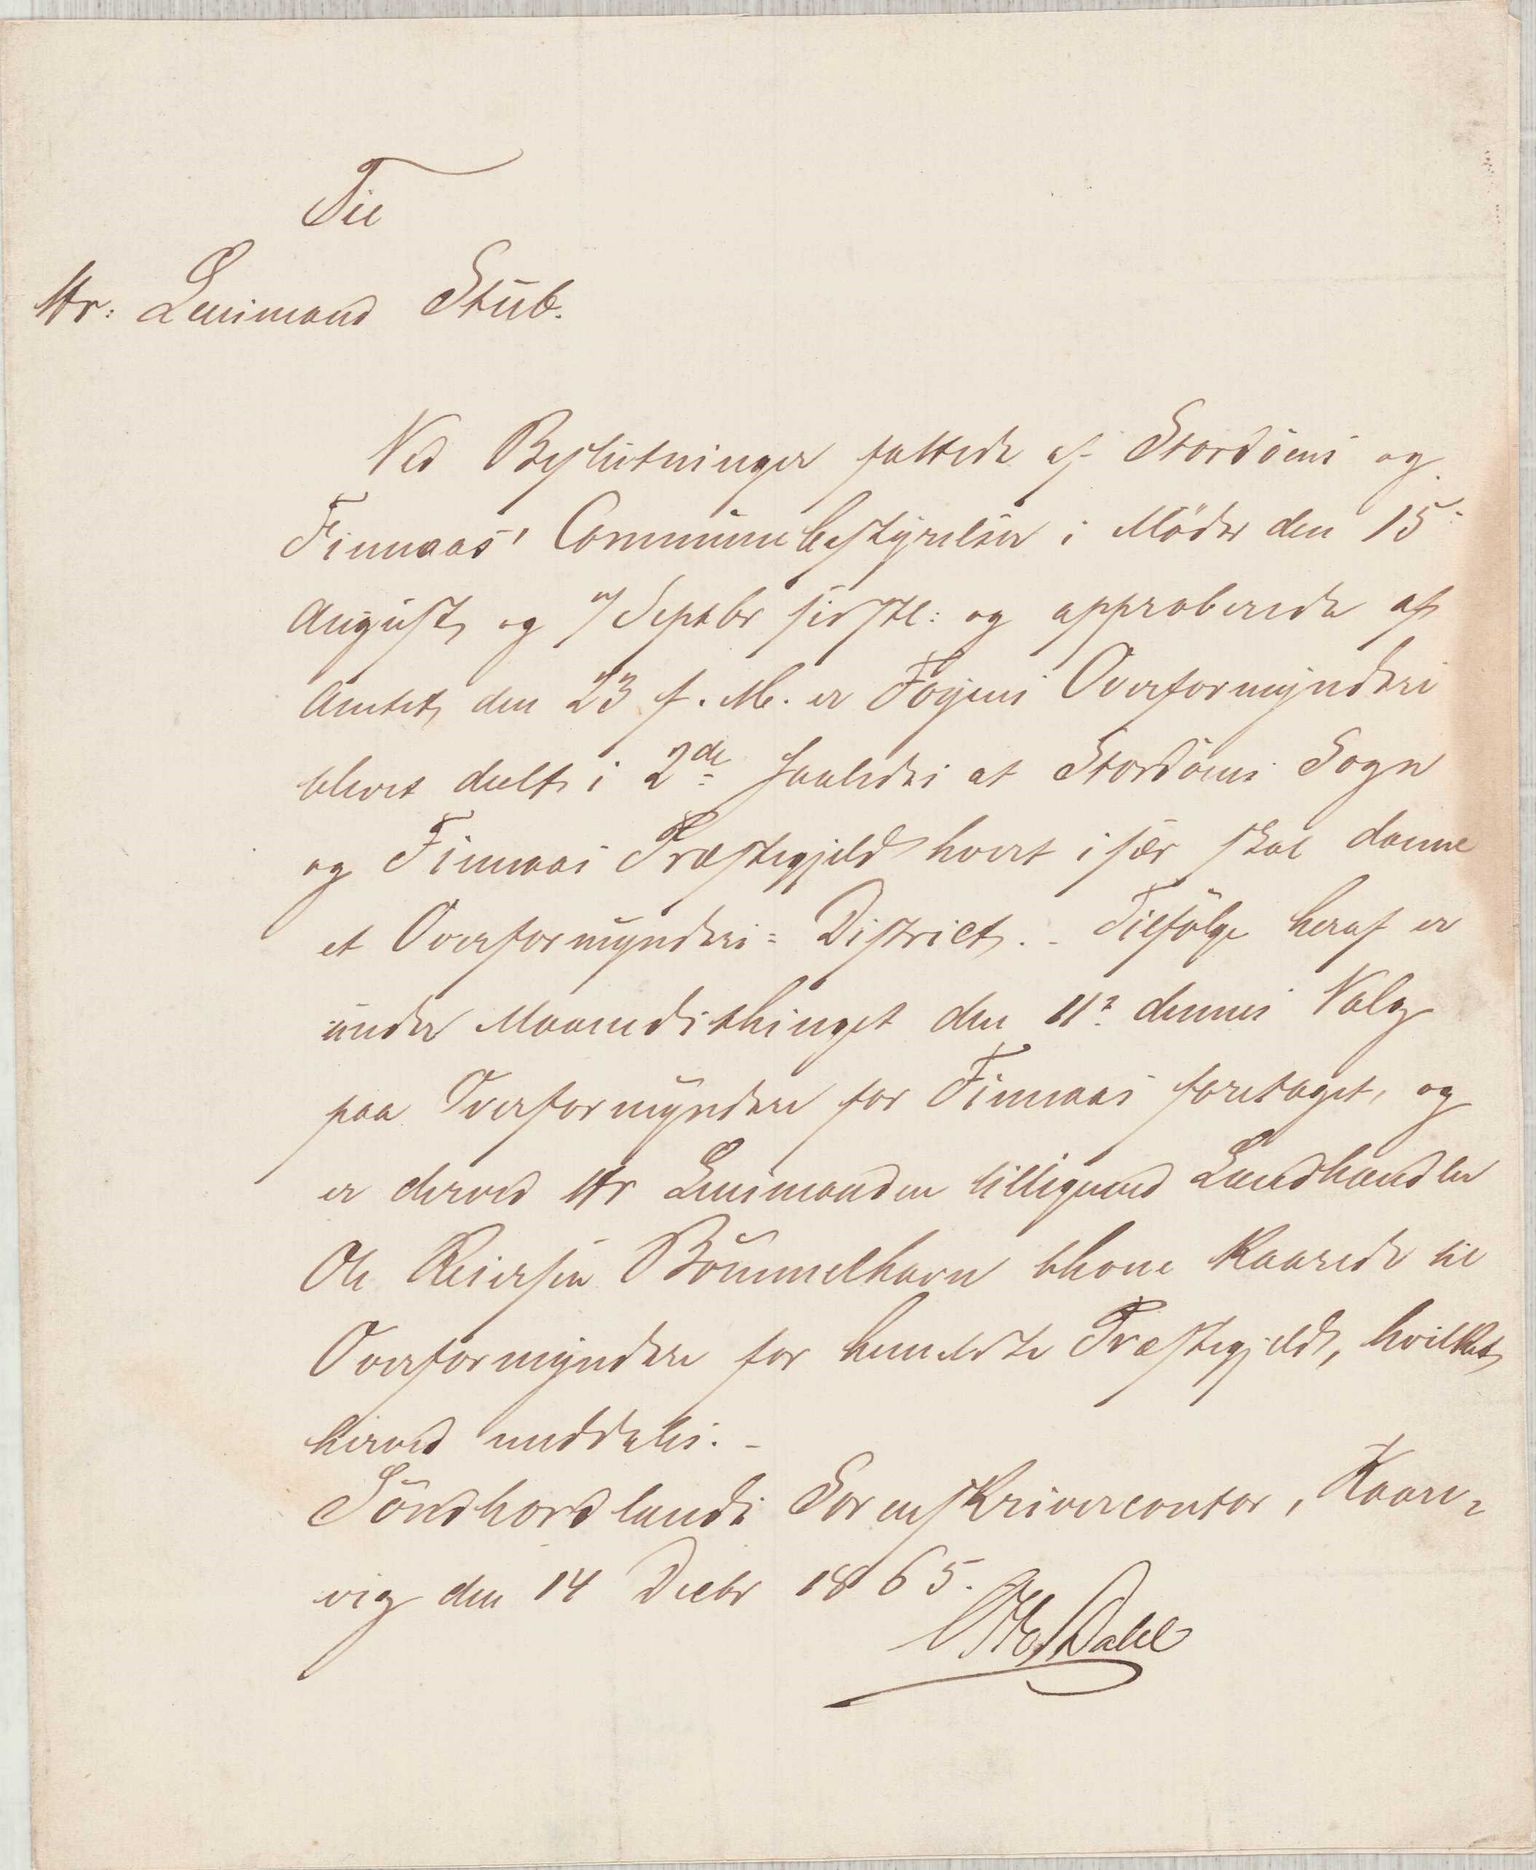 Til
Hr: Lensmand Stub.
Ved Beslutninger fattede af Stordöens og
Finnaas' Communebestyrelser i Möder den 15:
August og Septbr sidstl: og approberede af
Amtet den 23 f. M. er Föyens Overformynderi
blevet deelt i 2de saaledes at Stordöens Sogn
og Finnaas Præstegjeld hvert især skal danne
et Overformynderi= District. - Tilfölge heraf er
under Maanedsthinget den 11: dennes Valg
paa Overformyndere for Finnaas foretaget, og
er derved Hr Lensmanden tilligemed Landhandler
Ole Reiersen Bömmelhavn blevne kaarede til
Overformyndere for bemeldte Præstegjeld, hvilket
herved meddeles. -
Söndhordlands Sorenskrivercontor, Kaare=
vig den 14 Decbr 1865.
Dahl